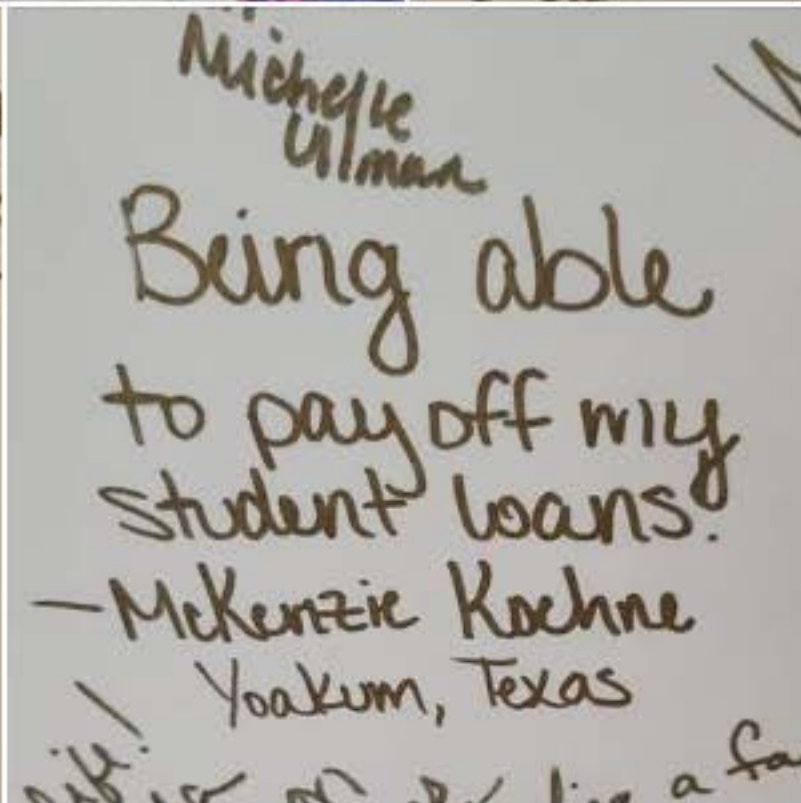 Michelle
Ulman
Being able
to pay off my
student loans!
- McKenzie Koehne
Yoakum, Texas
a fa